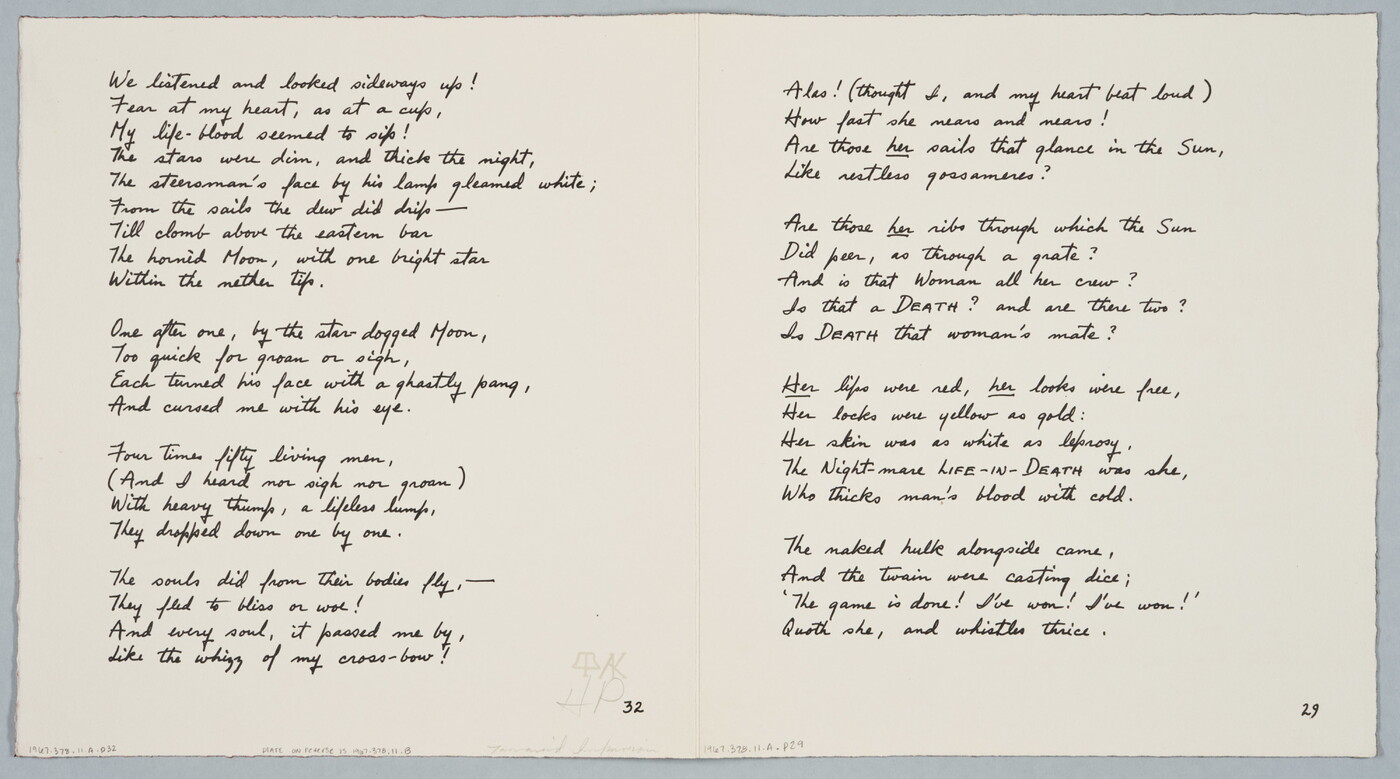 We listened and looked sideways up!
Fear at my heart, as at a cup,
My life-blood seemed to sip!
The stars were dim, and thick the night,
The steersman's face by his lamp gleamed white;
From the sails the dew did drip—
Till clomb above the eastern bar
The hornèd Moon, with one bright star
Within the nether tip.

One after one, by the star-dogged Moon,
Too quick for groan or sigh,
Each turned his face with a ghastly pang,
And cursed me with his eye.

Four times fifty living men,
(And I heard nor sigh nor groan)
With heavy thump, a lifeless lump,
They dropped down one by one.

The souls did from their bodies fly,—
They fled to bliss or woe!
And every soul, it passed me by,
Like the whizz of my cross-bow!
32
1967.378.11.A.p32
PLATE ON REVERSE IS 1967.378.11.B

Alas! (thought I, and my heart beat loud)
How fast she nears and nears!
Are those her sails that glance in the Sun,
Like restless gossameres?

Are those her ribs through which the Sun
Did peer, as through a grate?
And is that Woman all her crew?
Is that a DEATH? and are there two?
Is DEATH that woman's mate?

Her lips were red, her looks were free,
Her locks were yellow as gold:
Her skin was as white as leprosy,
The Night-mare LIFE-IN-DEATH was she,
Who thicks man's blood with cold.

The naked hulk alongside came,
And the twain were casting dice;
'The game is done! I've won! I've won!'
Quoth she, and whistles thrice.
29
1967.378.11.A.p29